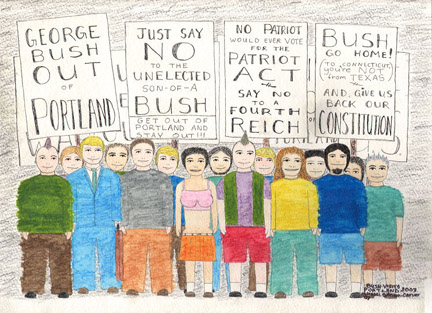 GEORGE
BUSH
OUT
OF
PORTLAND
JUST SAY
NO
TO THE
UNELECTED
SON-OF-A
BUSH
GET OUT OF
PORTLAND AND
STAY OUT!!!
NO PATRIOT
WOULD EVER VOTE
FOR THE
PATRIOT
ACT
SAY NO
TO A
FOURTH
REICH
BUSH
GO HOME!
(TO CONNECTICUT,
YOU'RE NOT
FROM TEXAS)
AND, GIVE US
BACK OUR
CONSTITUTION
BUSH VISITS
PORTLAND 2003